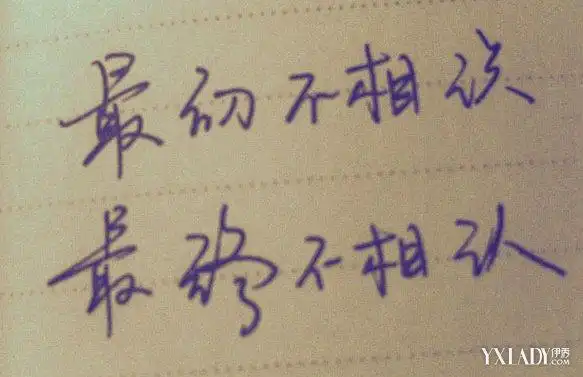 最初不相识
最终不相认
YXLADY伊秀